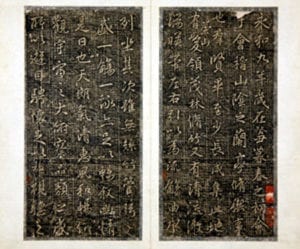 永和九年歲在癸丑暮春之初會
于會稽山陰之蘭亭脩禊事
也羣賢畢至少長咸集此地
有崇山峻領茂林脩竹又有清流激
湍映帶左右引以為流觴曲水
列坐其次雖無絲竹管弦之
盛一觴一詠亦足以暢敘幽情
是日也天朗氣清惠風和暢仰
觀宇宙之大俯察品類之盛
所以遊目騁懷足以極視聽之